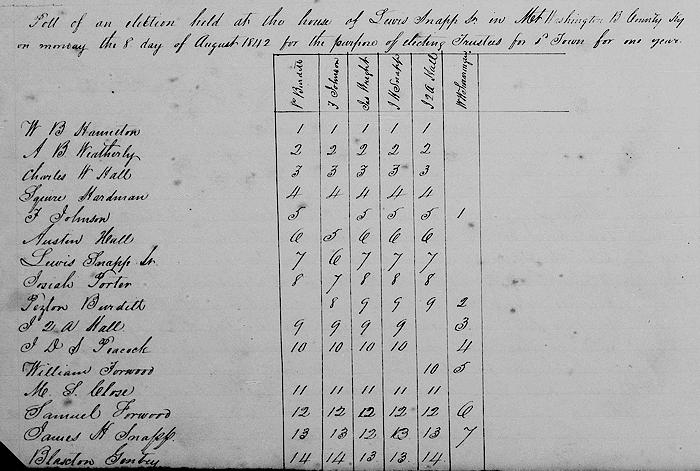 Poll of an election held at the house of Lewis Snapp Sr in Mt Washington B County Ky
on monday the 8 day of August 1842 for the purpose of electing Trustees for sd Town for one year.
P Burditt F Johnson Jas Wright J H Snapp J Q A Hall
W B Hamelton 1 1 1 1 1
A B Weatherly 2 2 2 2 2
Charles W Hall 3 3 3 3 3
Squire Hardman 4 4 4 4 4
F Johnson 5 5 5 5 1
Austin Hall 6 5 6 6 6
Lewis Snapp Sr 7 6 7 7 7
Josiah Porter 8 7 8 8 8
Peyton Burditt 8 9 9 9 2
J Q A Hall 9 9 9 9 3
J D S Peacock 10 10 10 10 4
William Forwood 10 5
M. S. Close 11 11 11 11 11
Samuel Forwood 12 12 12 12 12 6
James H Snapp 13 13 12 13 13 7
Blaxton Gentry 14 14 13 13 14